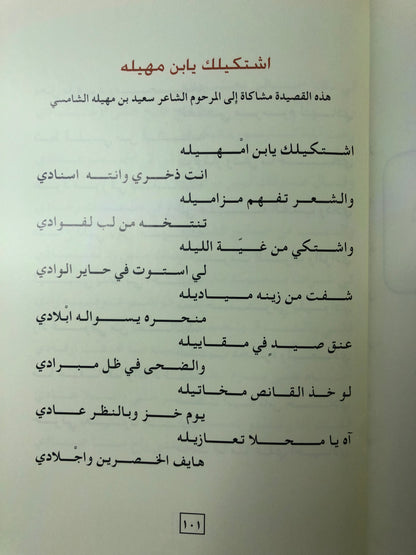 اشتكيلك يابن مهيله
هذه القصيدة مشاكاة إلى المرحوم الشاعر سعيد بن مهيله الشامسي
اشتكيلك يابن امْهيله
انت ذخري وانته اسنادي
والشعر تفهم مزاميله
تنتخه من لب لفوادي
واشتكي من غيَة الليله
لي استوت في حاير الوادي
شفت من زينه مياديله
منحره يسواله ابْلادي
عنق صيدٍ في مقاييله
والضحى في ظل مبرادي
لو خذ القانص مخاتيله
يوم خز وبالنظر عادي
آه يا محلا تعازيله
هايف الخصرين واجْلادي
١٠١